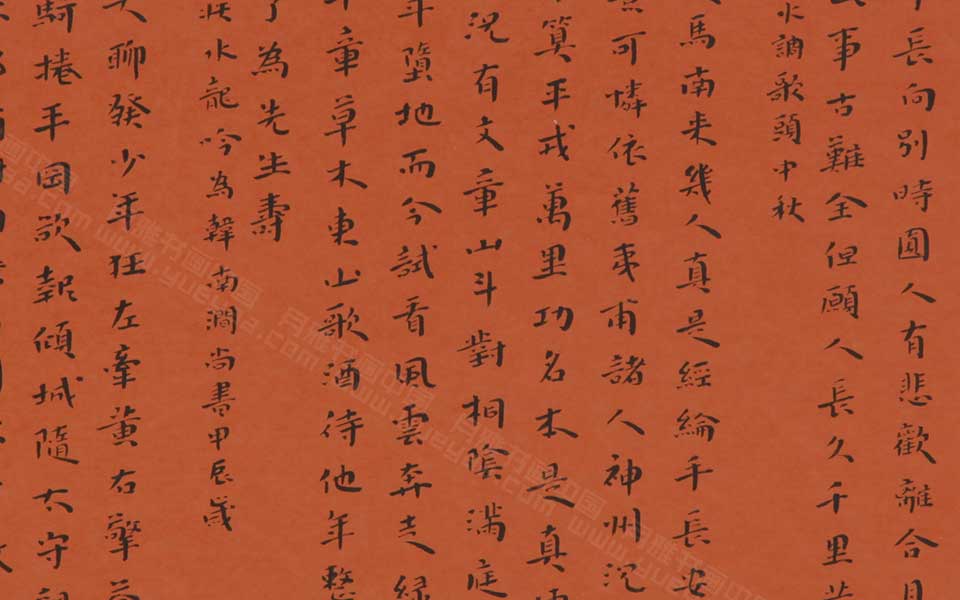 長向別時圓人有悲歡離合月
事古難全但願人長久千里共
水調歌頭中秋
馬南來幾人真是經綸手長安
景可憐依舊夷甫諸人神州沉
算平戎萬里功名本是真
況有文章山斗對桐陰滿庭
年墮地而今試看風雲奔走綠
章草木東山歌酒待他年整
了為先生壽
水龍吟為韓南澗尚書甲辰歲
夫聊發少年狂左牽黃右擎蒼
騎捲平岡欲報傾城隨太守親